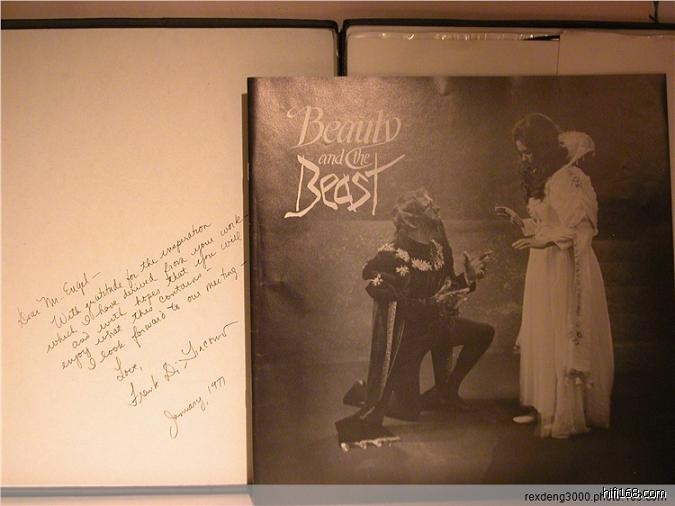 Dear Mr. Engel—
With gratitude for the inspiration
which I have derived from your work—
and with hopes that you will
enjoy what this contains—
I look forward to our meeting—
Love,
Frank Di Giacomo
January, 1977
Beauty
and the
Beast
rexdeng3000.photo.
hifi168.com